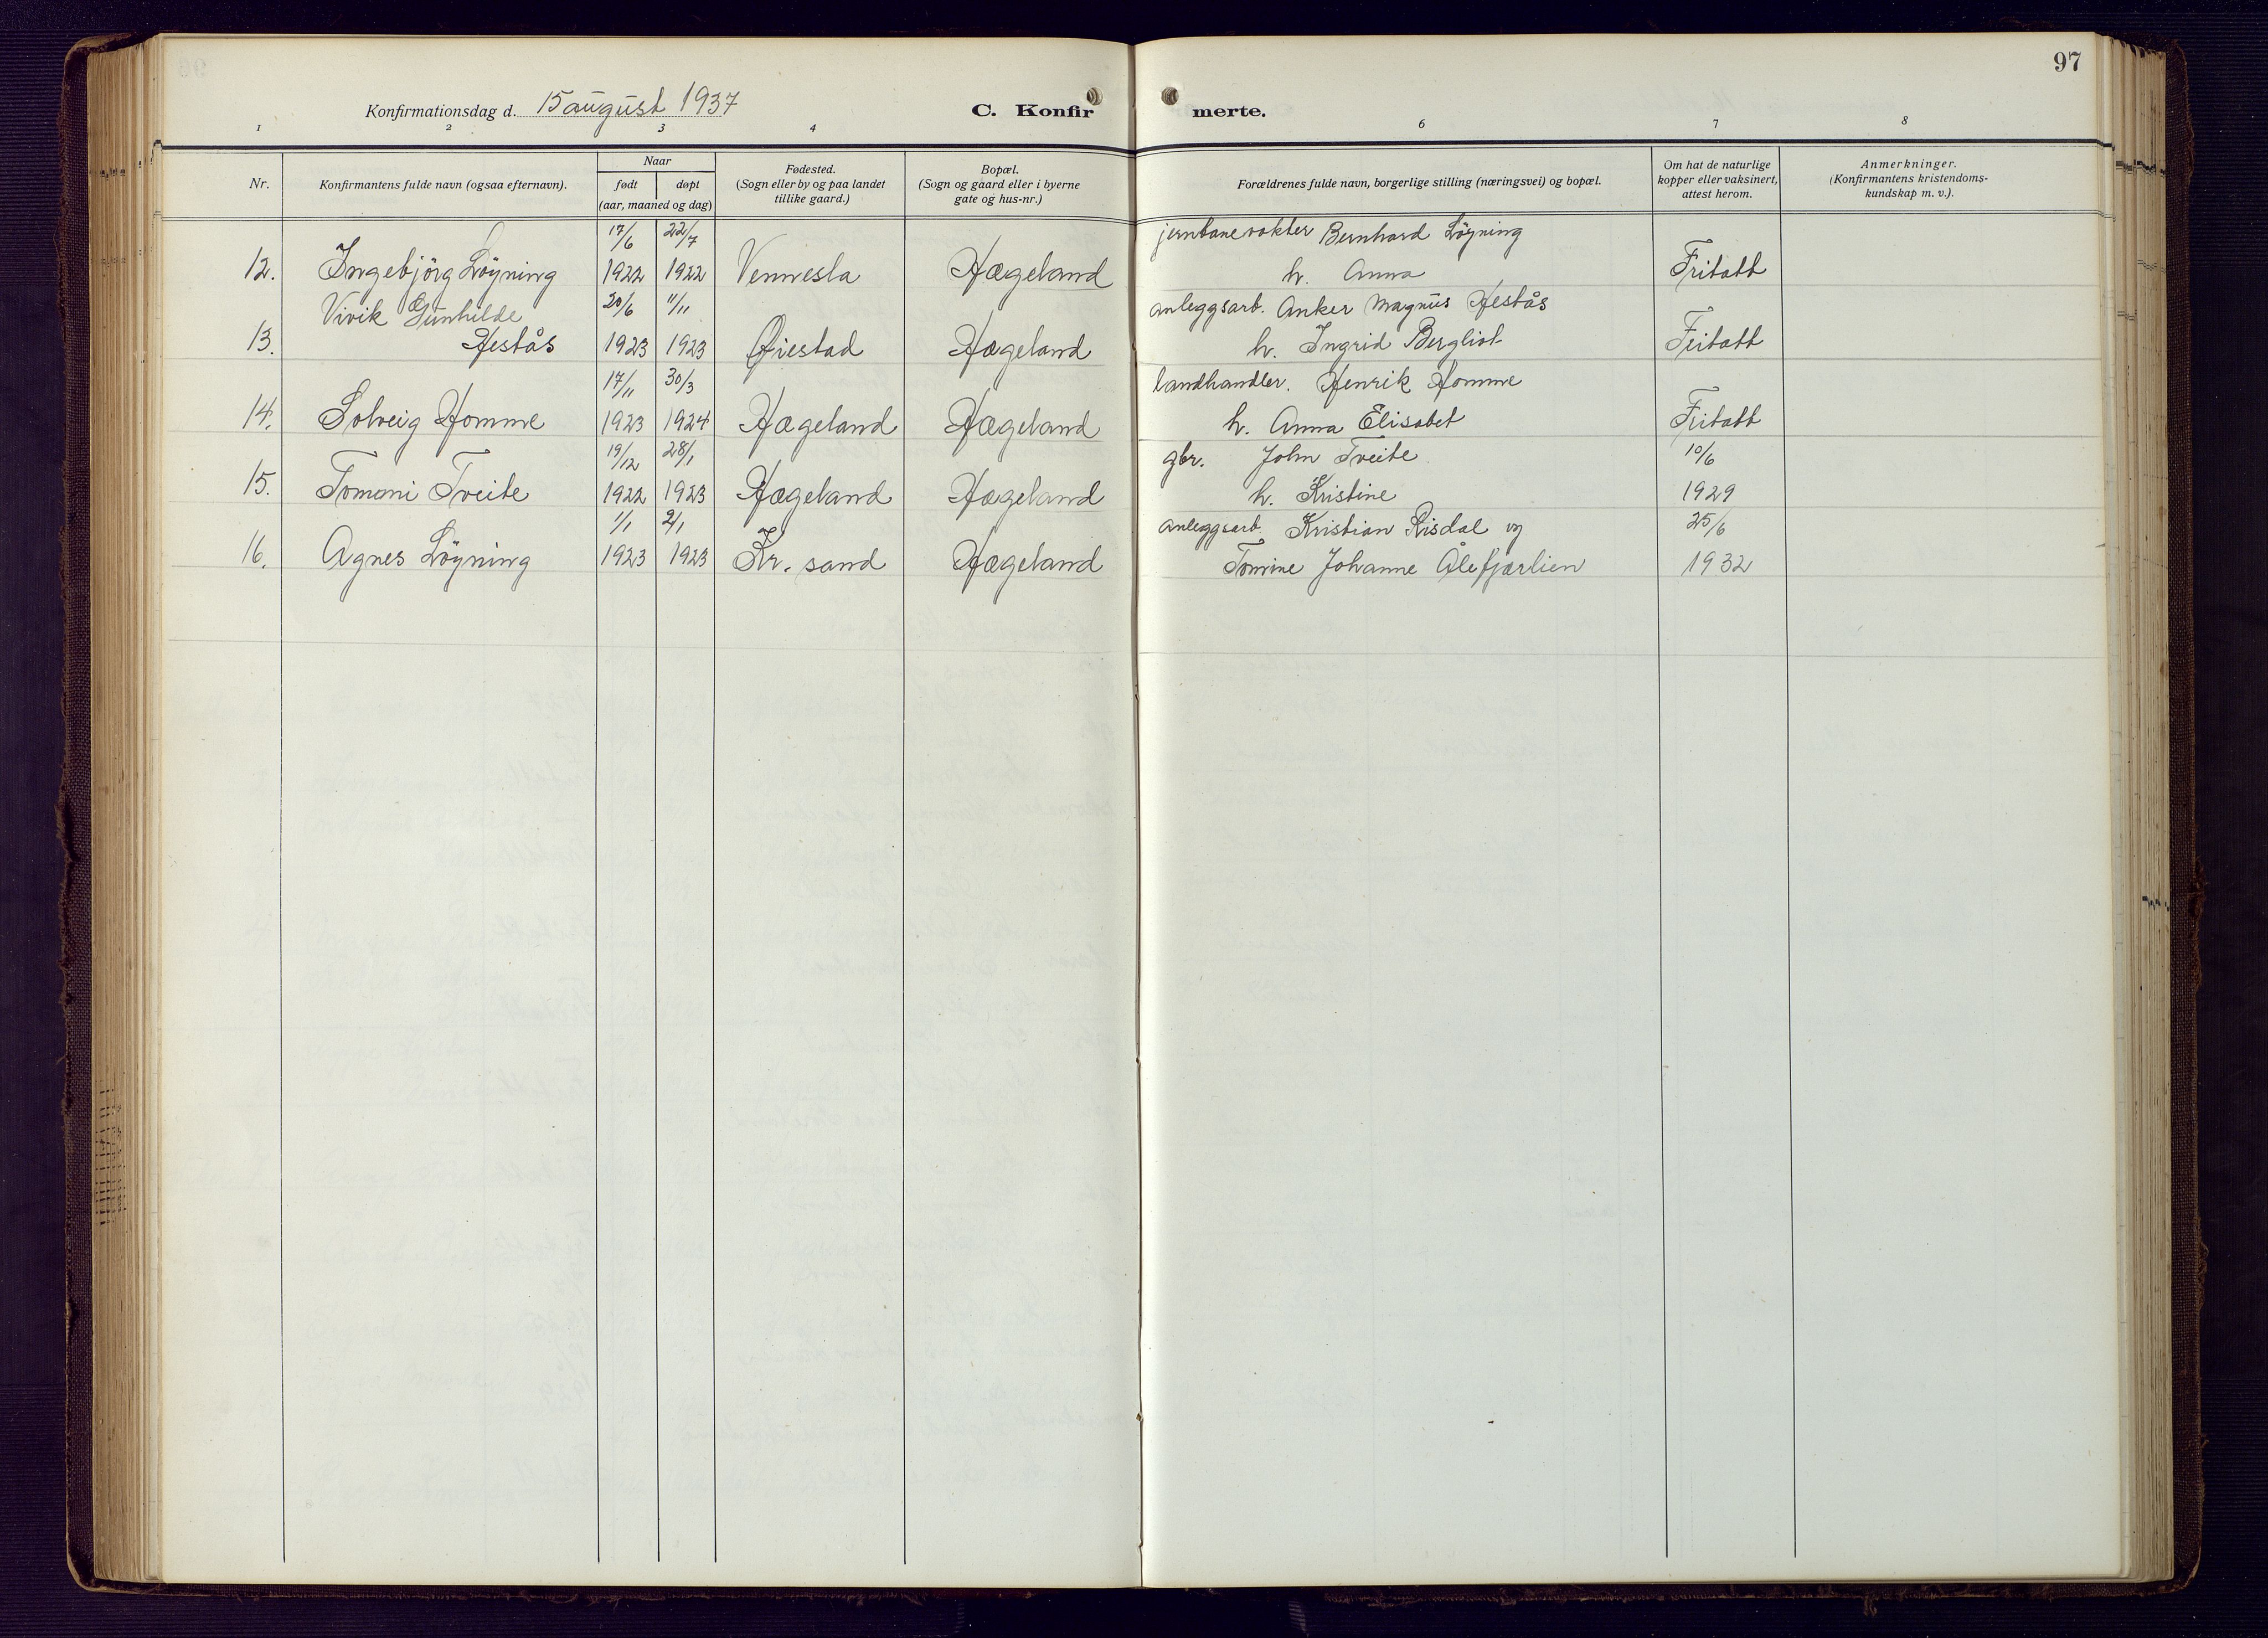 97
Konfirmationsdag d. 15 august 1937 C. Konfir merte.
1 2 3 4 6 7 8
Nr.
Konfirmantens fulde navn (ogsaa efternavn).
Naar
født døpt
(aar, maaned og dag)
Fødested.
(Sogn eller by og paa landet
tillike gaard.)
Bopæl.
(Sogn og gaard eller i byerne
gate og hus-nr.)
Forældrenes fulde navn, borgerlige stilling (næringsvei) og bopæl.
Om hat de naturlige
kopper eller vaksinert,
attest herom.
Anmerkninger.
(Konfirmantens kristendoms-
kundskap m. v.).
17/6 22/7 jernbanevokter Bernhard Löyning
12. Ingebjörg Löyning 1922 1922 Vennesla Hægeland h. Anna Fritatt
Vivik Gunhilde 20/6 11/11 anleggsarb. Anker Magnus Hestås
13. Hestås 1923 1923 Øiestad Hægeland h. Ingrid Bergliot Fritatt
17/11 30/3 landhandler. Henrik Homme
14. Solveig Homme 1923 1924 Hægeland Hægeland h. Anna Elisabet Fritatt
19/12 28/1 gbr. John Tveite 10/6
15. Tomoni Tveite 1922 1923 Hægeland Hægeland h. Kristine 1929
1/1 2/1 anleggsarb. Kristian Risdal og 25/6
16. Agnes Löyning 1923 1923 Kr. sand Hægeland Tomine Johanne Ålefjærlien 1932